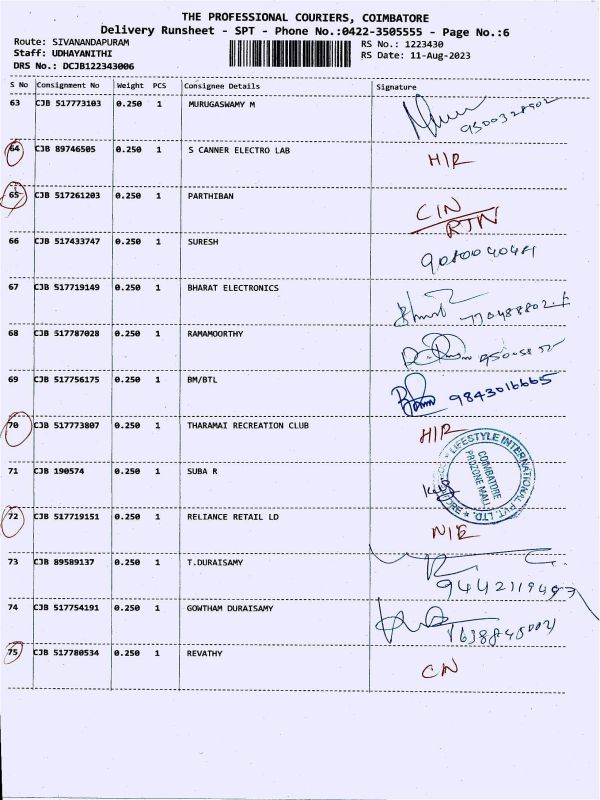 THE PROFESSIONAL COURIERS, COIMBATORE
Delivery Runsheet - SPT - Phone No.:0422-3505555 - Page No.:6
Route: SIVANANDAPURAM
RS No.: 1223430
Staff: UDHAYANITHI
RS Date: 11-Aug-2023
DRS No.: DCJB122343006
S No Consignment No Weight PCS Consignee Details Signature
63 CJB 517773103 0.250 1 MURUGASWAMY M
64 CJB 89746505 0.250 1 S CANNER ELECTRO LAB H/R
65 CJB 517261203 0.250 1 PARTHIBAN C/N
RTN
66 CJB 517433747 0.250 1 SURESH
67 CJB 517719149 0.250 1 BHARAT ELECTRONICS
68 CJB 517787028 0.250 1 RAMAMOORTHY
69 CJB 517756175 0.250 1 BM/BTL 9843016665
70 CJB 517773807 0.250 1 THARAMAI RECREATION CLUB H/R
71 CJB 190574 0.250 1 SUBA R
LIFESTYLE INTERNATIONAL PVT. LTD.
COIMBATORE
PROZONE MALL
72 CJB 517719151 0.250 1 RELIANCE RETAIL LD
73 CJB 89589137 0.250 1 T.DURAISAMY
74 CJB 517754191 0.250 1 GOWTHAM DURAISAMY
75 CJB 517780534 0.250 1 REVATHY C/N